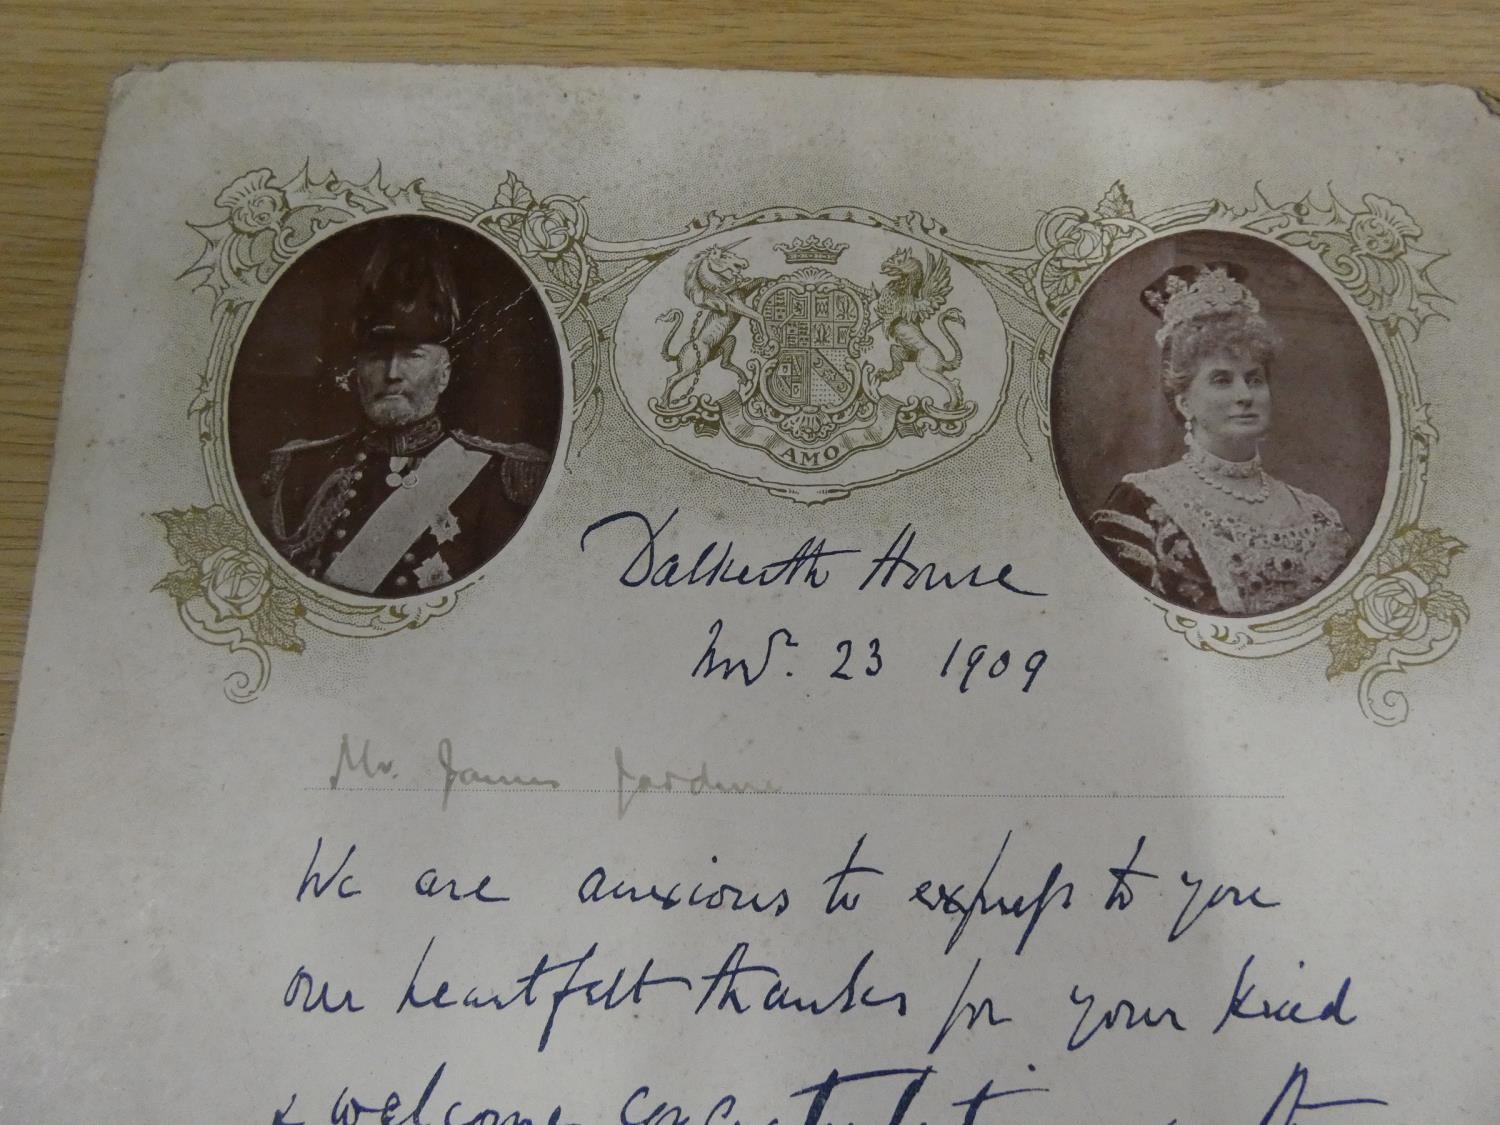 AMO
Dalkeith House
Novr. 23 1909
Mr. James Jardine
We are anxious to express to you
our heartfelt thanks for your kind
& welcome congratulations